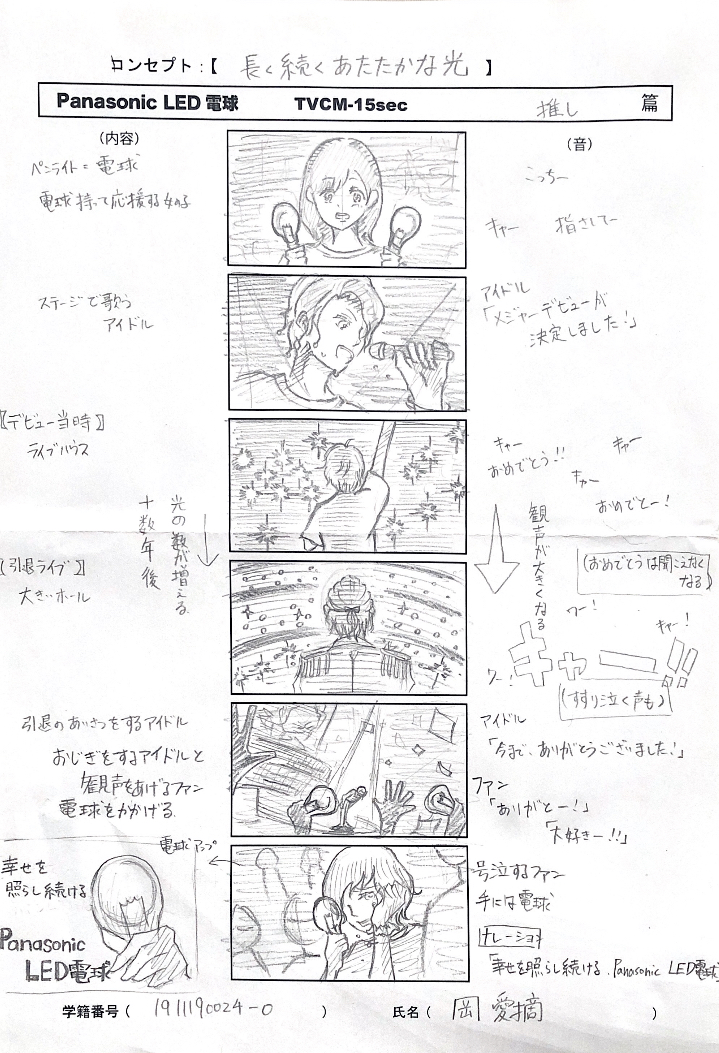 コンセプト:【 長く続くあたたかな光 】
Panasonic LED 電球 TVCM-15sec 推し 篇
(内容)
(音)
ペンライト = 電球
電球持って応援する女の子
こっちー
キャー 指さしてー
ステージで歌う
アイドル
アイドル
「メジャーデビューが
決定しました!」
【デビュー当時】
ライブハウス
キャー
おめでとう!!
キャー
キャー
おめでとー!
光の数が増える
十数年後
観声が大きくなる
【引退ライブ】
大きいホール
(おめでとうは聞こえなく
なる)
ワー!
キャー!
ワー!
キャー!!
(すすり泣く声も)
引退のあいさつをするアイドル
おじぎをするアイドルと
観声をあげるファン
電球をかかげる
アイドル
「今まで、ありがとうございました!」
ファン
「ありがとー!」
「大好きー!!」
電球アップ
幸せを
照らし続ける
Panasonic
LED電球
号泣するファン
手には電球
ナレーション
「幸せを照らし続ける、Panasonic LED電球」
学籍番号 ( 1911190024-0 ) 氏名 ( 岡 愛摘 )